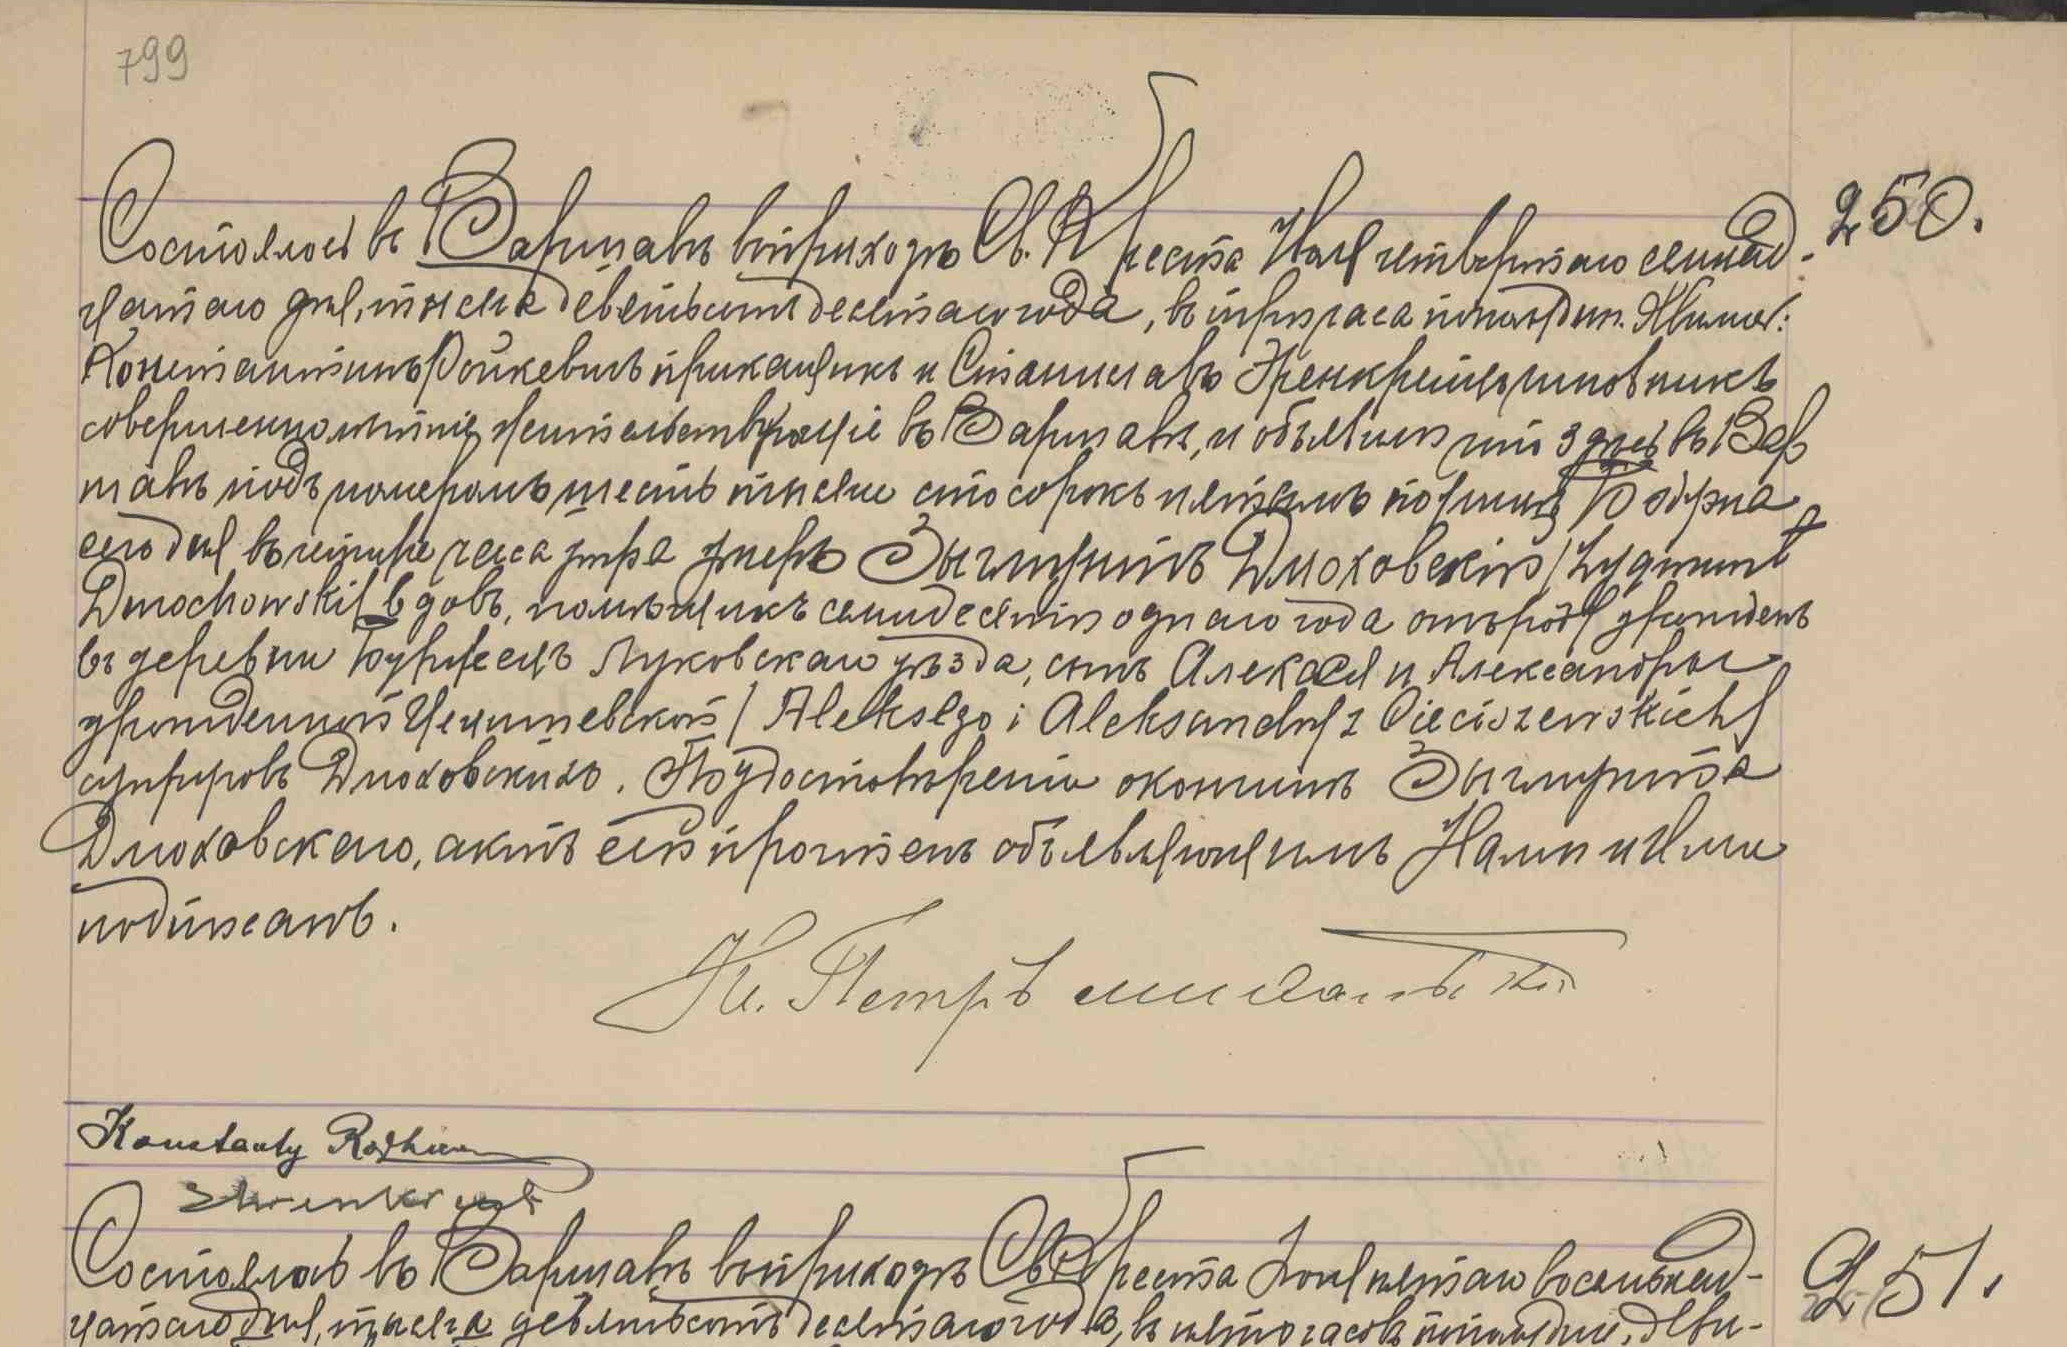 799
250.
Состоялось въ Варшавѣ въ приходѣ Св. Креста Мая четвертаго семнад-
цатаго дня, тысяча девятьсотъ десятаго года, въ три часа пополудни. Явились:
Константинъ прикащикъ и Станиславъ чиновникъ
совершеннолѣтніе, жительствующіе въ Варшавѣ, и объявили что здѣсь въ Вар
шавѣ подъ номеромъ шесть тысячъ сто сорокъ пятымъ по улицѣ
сего дня въ четыре часа утра умеръ Зыгмунтъ Дмоховскій /Zygmunt
Dmochowski/ вдовъ, помѣщикъ семидесяти одного года отъ роду, урожденъ
въ деревни Луковскаго уѣзда, сынъ Алексѣя и Александры
урожденной Цецишевской /Aleksego i Aleksandry z Cieciszewskich/
супруговъ Дмоховскихъ. По удостовѣреніи о кончинѣ Зыгмунта
Дмоховскаго, актъ сей прочитанъ объявляющимъ Нами и Ими
подписанъ.
Кс. Петръ
Konstanty
251.
Состоялось въ Варшавѣ въ приходѣ Св. Креста пятаго восемнад-
цатаго дня, тысяча девятьсотъ десятаго года, въ часовъ пополудни. Яви-